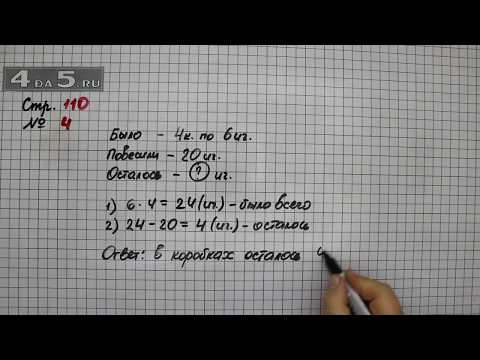 4DA5.RU
Стр. 110
№ 4
Было - 4к. по 6иг.
Повесили - 20 иг.
Осталось - ? иг.
1) 6 · 4 = 24 (иг.) - было всего
2) 24 - 20 = 4 (иг.) - осталось
Ответ: в коробках осталось 4